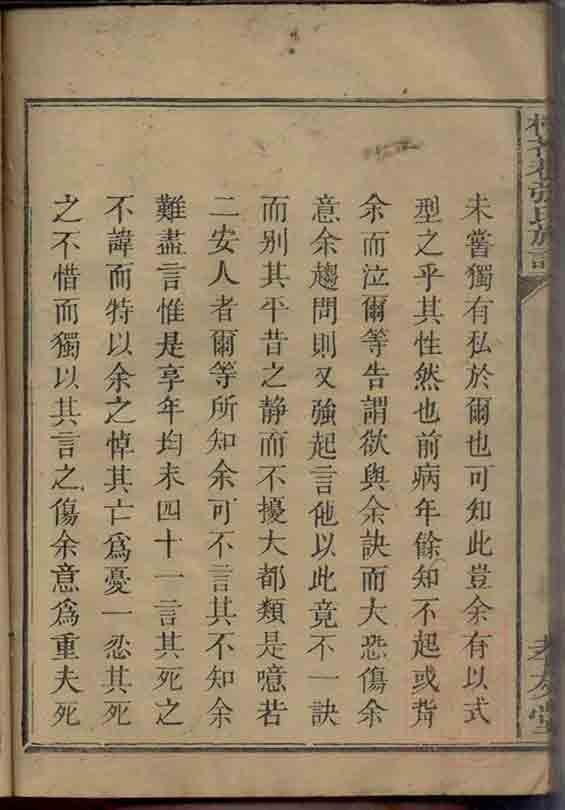 張氏族譜
孝友堂
未嘗獨有私於爾也可知此豈余有以式
型之乎其性然也前病年餘知不起或背
余而泣爾等告謂欲與余訣而大恐傷余
意余趨問則又強起言他以此竟不一訣
而别其平昔之靜而不擾大都類是噫若
二安人者爾等所知余可不言其不知余
難盡言惟是享年均未四十一言其死之
不諱而特以余之悼其亡爲憂一忍其死
之不惜而獨以其言之傷余意爲重夫死